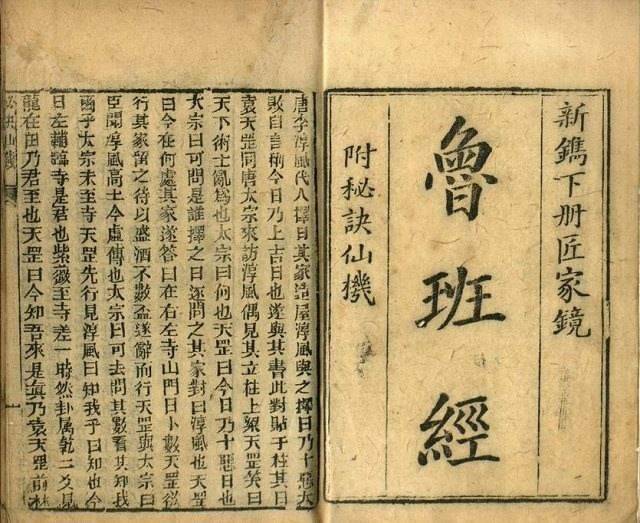 新鐫下册匠家鏡
魯班經
附秘訣仙機
唐李淳風代人擇日其家造屋淳風與之擇日乃十惡大
敗自稱今日乃上吉日也遂與其書此對貼于柱其日
袁天罡同唐太宗來訪淳風偶見其立柱上梁天罡笑曰
天下術士亂爲也太宗曰何也天罡曰今日乃十惡日也
太宗曰可問是誰擇之日遂問之其家對曰淳風也天罡
曰今在何處其家遂答曰在右左寺山門日卜數天罡
行其家留之待以盛酒不數盃遂辭而行天罡與太宗曰
臣聞淳風高士今虛傳也太宗曰可去問其數看其知我
太宗未至寺天罡先行見淳風曰知我乎曰知也今
日左輔臨寺是君也紫薇至寺差一時然卦属乾二爻見
龍在田乃君至也天罡曰今知吾來是眞乃袁天罡前